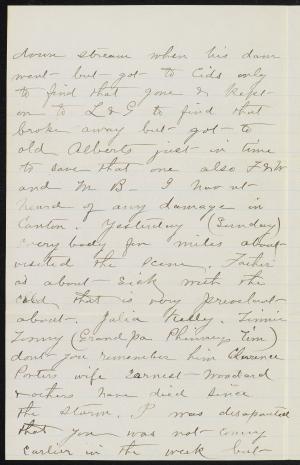 down stream when his dam
went but got to Cids only
to find that gone & kept
on to L & G to find that
broke away but got to
old Alberts just in time
to save that one also F & W
and M B - I have nt
heard of any damage in
Canton. Yesterday (Sunday)
every body for miles about
visited the scene. Father
is about sick with the
cold that is very prevalent
about. Julia Kelly. Jinnie
Tenny (Grandpa Phinneys Tim)
dont you remember him Clarence
Porters wife Earnest Woodard
& others have died since
the storm. I was disapointed
that you was not coming
earlier in the week but